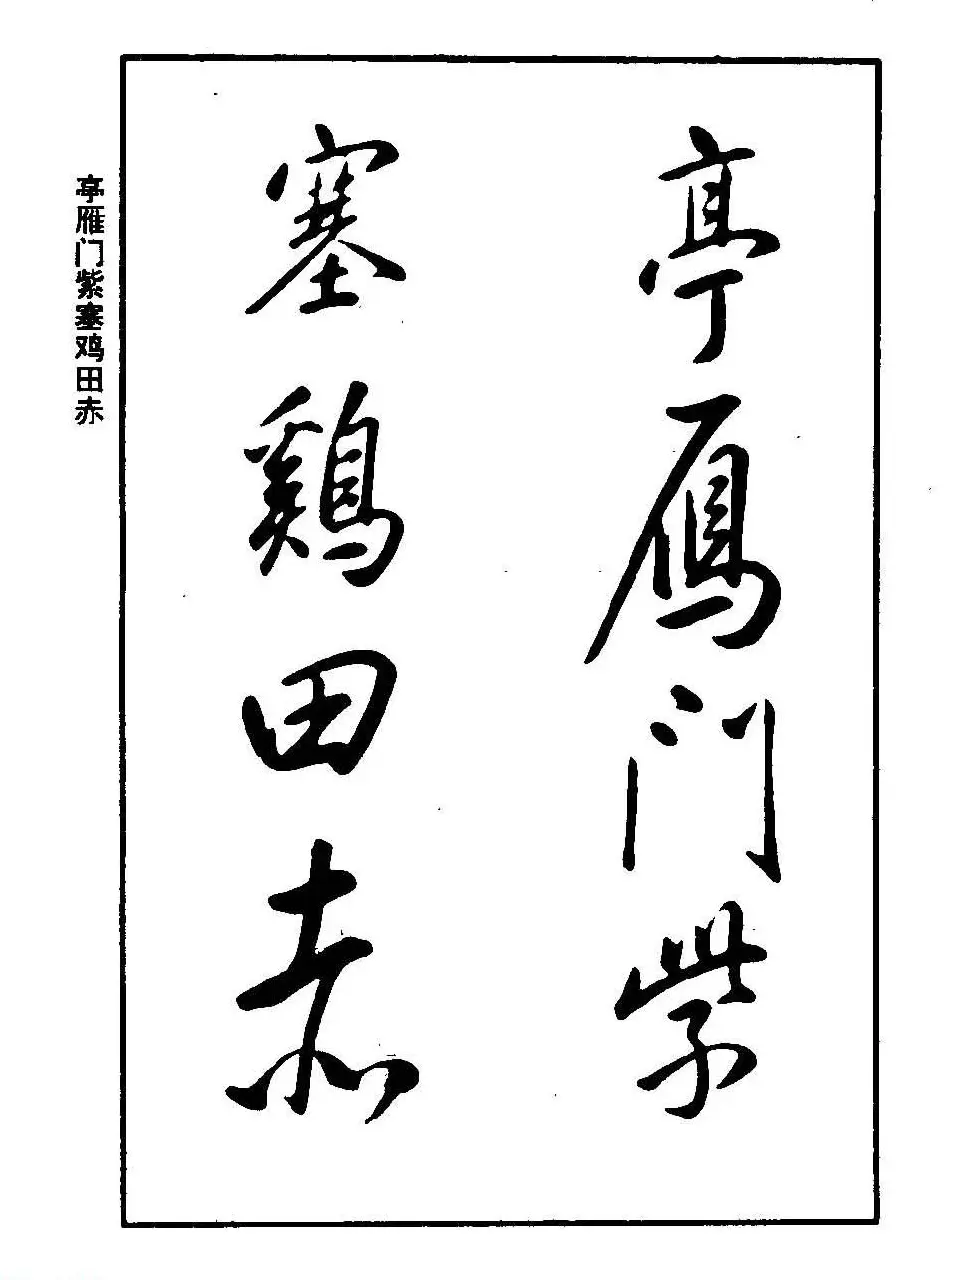 亭雁门紫
塞鷄田赤
亭雁门紫塞鸡田赤